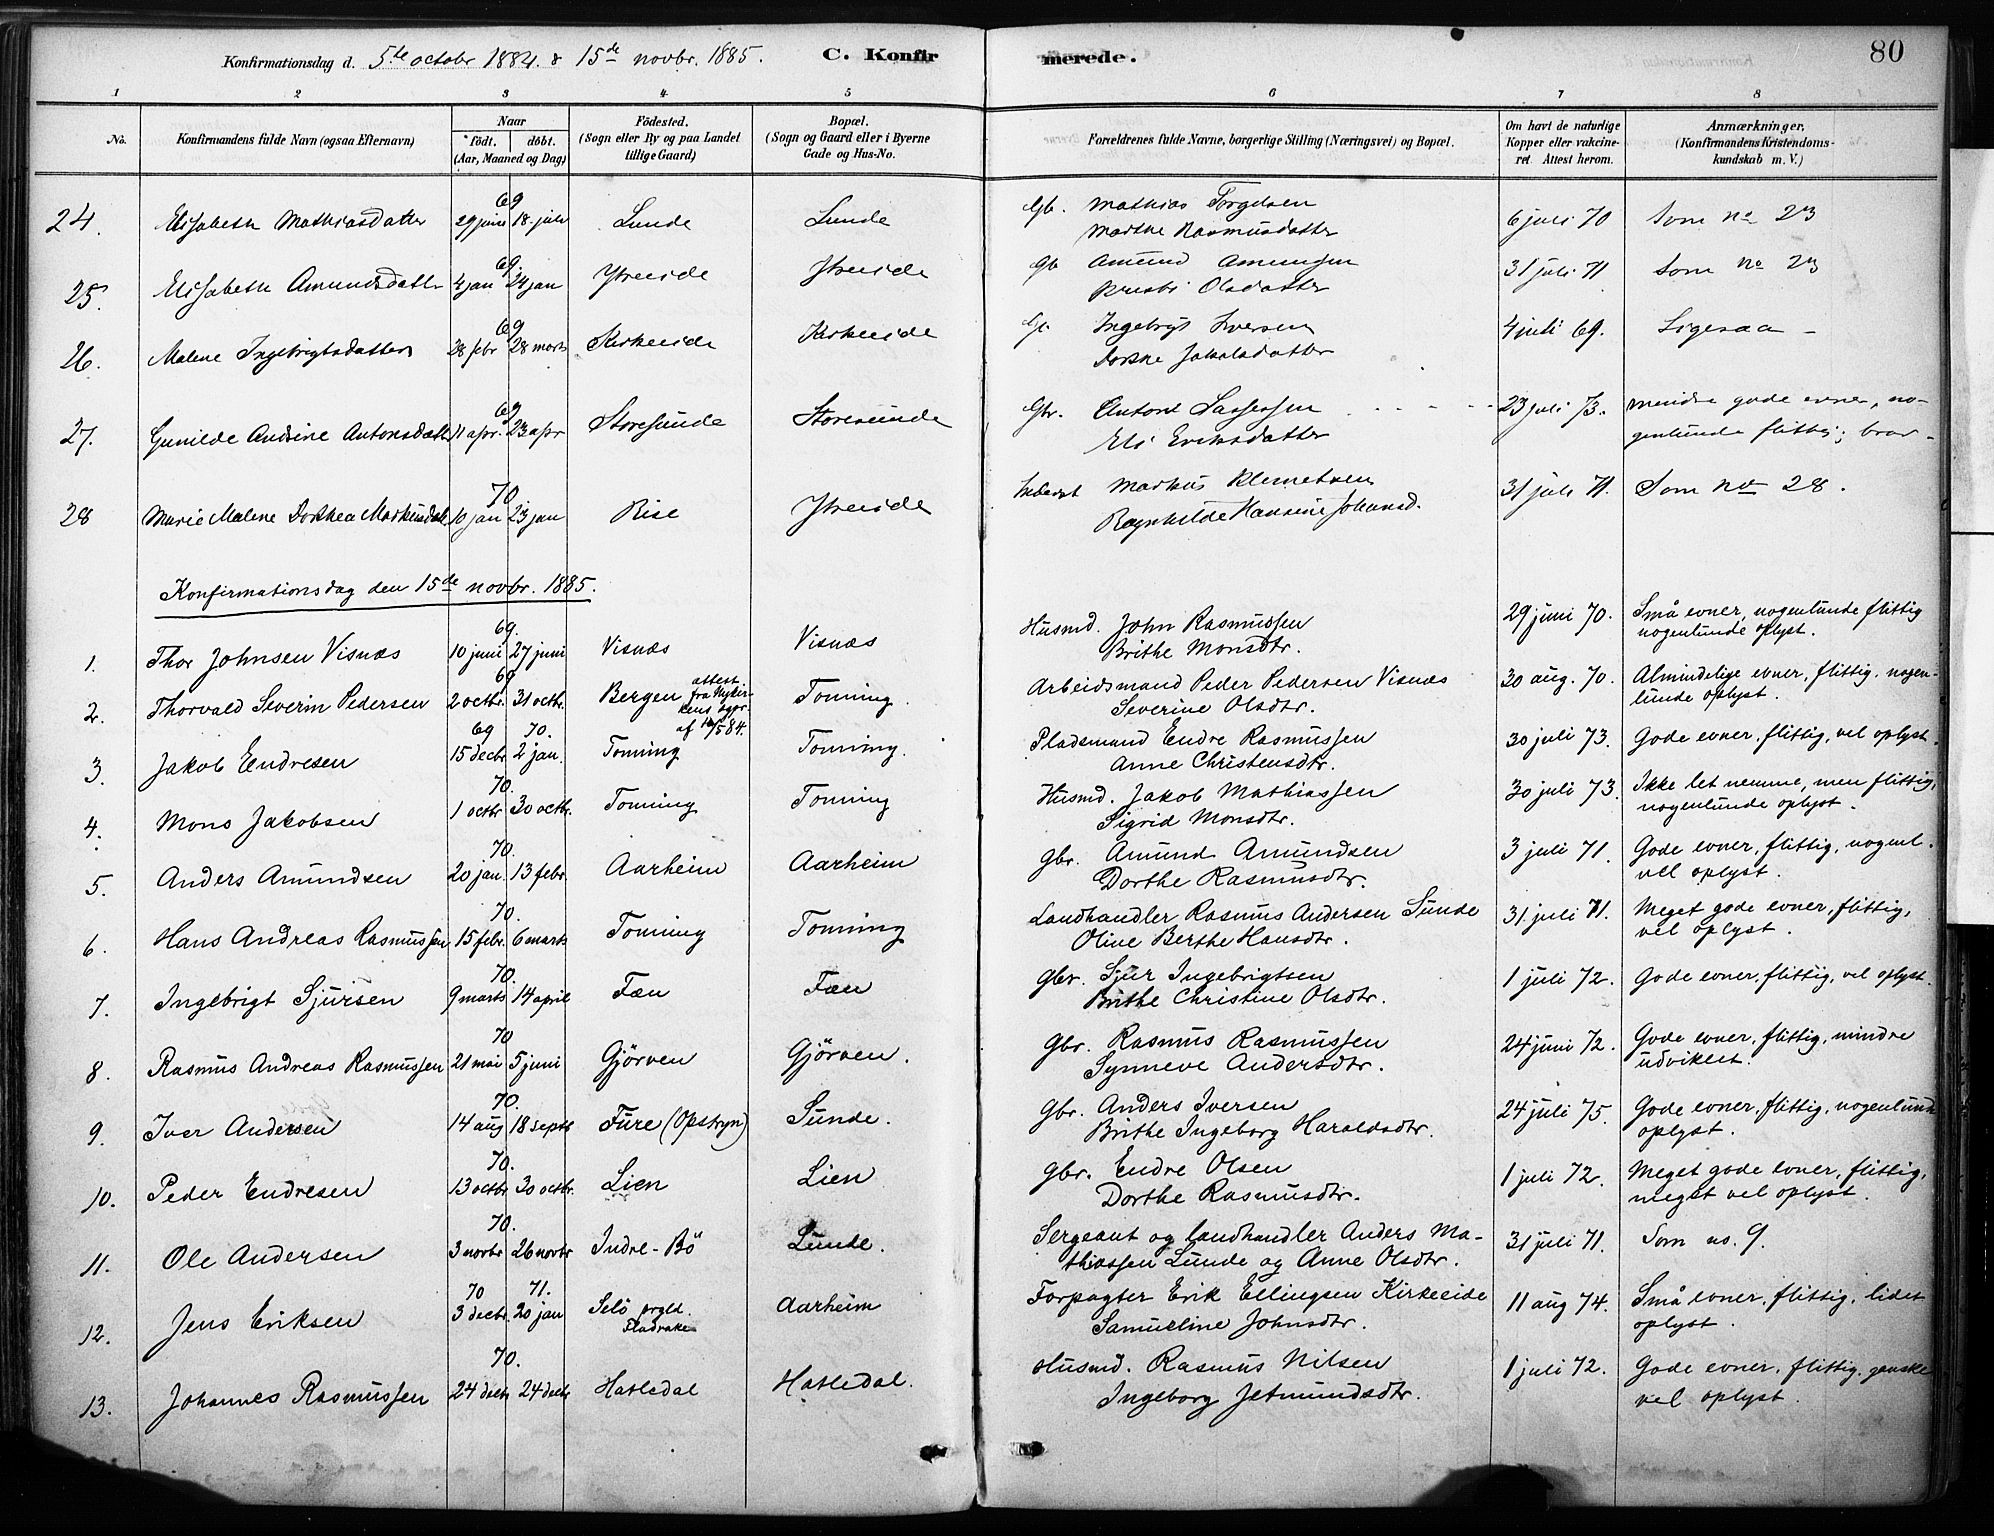 Konfirmationsdag d. 5te octobr 1884. & 15de novbr. 1885. C. Konfirmerede. 80
1 2 3 4 5 6 7 8
No. Konfirmandens fulde Navn (ogsaa Efternavn) Naar født. døbt. (Aar, Maaned og Dag) Födested. (Sogn eller By og paa Landet tillige Gaard) Bopæl. (Sogn og Gaard eller i Byerne Gade og Hus-No. Forældrenes fulde Navne, borgerlige Stilling (Næringsvei) og Bopæl. Om havt de naturlige Kopper eller vakcineret. Attest herom. Anmærkninger. (Konfirmandens Kristendomskundskab m. V.)
24. Elisabeth Mathiasdatter 69 29 juni 18. juli Lunde Lunde Gb. Mathias Torgelsen 6 juli 70 Som no 23
Marthe Rasmusdatter
25. Elisabeth Amundsdatter 69 4 jan 24 jan Ytreeide Ytreeide Gb Amund 31 juli 71 Som no 23
Olsdatter
26. Malene Ingebrigtsdatter 69 28 febr 28 marts Kirkeeide Kirkeeide Ingebrigt Iversen 4 juli 69. Ligesaa -
Dorthe Jakobsdatter
27. Gunilde Andrine Antonsdatter 69 11 apr. 23 apr Storesunde Storesunde Gbr. Anton Lassessen 23 juli 73. mindre gode evner, no-
Eli Eriksdatter genlunde flittig; brav-
28 Marie Malene Dorthea Markusdatt 70 10 jan 23 jan Rise Ytreeide Markus Klemetsen 31 juli 71. Som no 28.
Ragnhilde Hansine Johansd.
Konfirmationsdag den 15de novbr. 1885.
1. Thor Johnsen Visnæs 69. 10 juni 27 juni Visnæs Visnæs Husmd. John Rasmussen 29 juni 70. Små evner, nogenlunde flittig
Brithe Monsdtr. nogenlunde oplyst.
2. Thorvald Severin Pedersen 69 2 octbr. 31 octbr. Bergen attest fra Nykirkens sgpr. af 12/5 84. Tonning. Arbeidsmand Peder Pedersen Visnæs 30 aug. 70. Almindelige evner, flittig, nogen-
Severine Olsdtr. lunde oplyst.
3. Jakob Endresen 69 15 decbr. 70. 2 jan. Tonning Tonning. Pladsmand Endre Rasmussen 30 juli 73. Gode evner, flittig, vel oplyst.
Anne Christensdtr.
4. Mons Jakobsen 70. 1 octbr 30 octbr. Tonning Tonning Husmd. Jakob Mathiassen 30 juli 73. Ikke let nemme, men flittig,
Sigrid Monsdtr. nogenlunde oplyst.
5. Anders Amundsen 70. 20 jan. 13 febr. Aarheim Aarheim gbr. Amund Amundsen 3 juli 71. Gode evner, flittig, nogenl.
Dorthe Rasmusdtr. vel oplyst.
6. Hans Andreas Rasmussen 70. 15 febr. 6 marts Tonning Tonning Landhandler Rasmus Andersen Sunde 31. juli 71. Meget gode evner, flittig,
Oline Berthe Hansdtr. vel oplyst.
7. Ingebrigt Sjursen 70. 9 marts 14 april Fæn Fæn gbr. Sjur Ingebrigtsen 1 juli 72. Gode evner, flittig, vel oplyst.
Brithe Christine Olsdtr.
8. Rasmus Andreas Rasmussen 70 21 mai 5 juni Gjörven Gjörven. gbr. Rasmus Rasmussen 24 juni 72. Gode evner, flittig, mindre
Synneve Andersdtr. udviklet.
9. Iver Andersen 70. 14 aug 18 septb Fure (Opstryn) Sunde. gbr. Anders Iversen 24 juli 75. Gode evner, flittig, nogenlunde
Brithe Ingeborg Haraldsdtr. oplyst.
10. Peder Endresen 70. 13 octbr. 30 octbr. Lien Lien gbr. Endre Olsen 1 juli 72. Meget gode evner, flittig,
Dorthe Rasmusdtr. meget vel oplyst.
11. Ole Andersen 70. 3 novbr 26 novbr Indre-Bö Lunde. Sergeant og landhandler Anders Ma- 31 juli 71. Som no. 9.
thiassen Lunde og Anne Olsdtr.
12. Jens Eriksen 70 3 decbr. 71. 20 jan Selö prgld. Aarheim Forpagter Erik Ellingsen Kirkeeide 11 aug 74. Små evner, flittig, lidet
Samueline Johnsdtr. oplyst.
13. Johannes Rasmussen 70. 24 decbr 24 decbr Hatledal Hatledal. Husmd. Rasmus Nilsen 1 juli 72. Gode evner, flittig, ganske
Ingeborg Jetmundsdtr. vel oplyst.